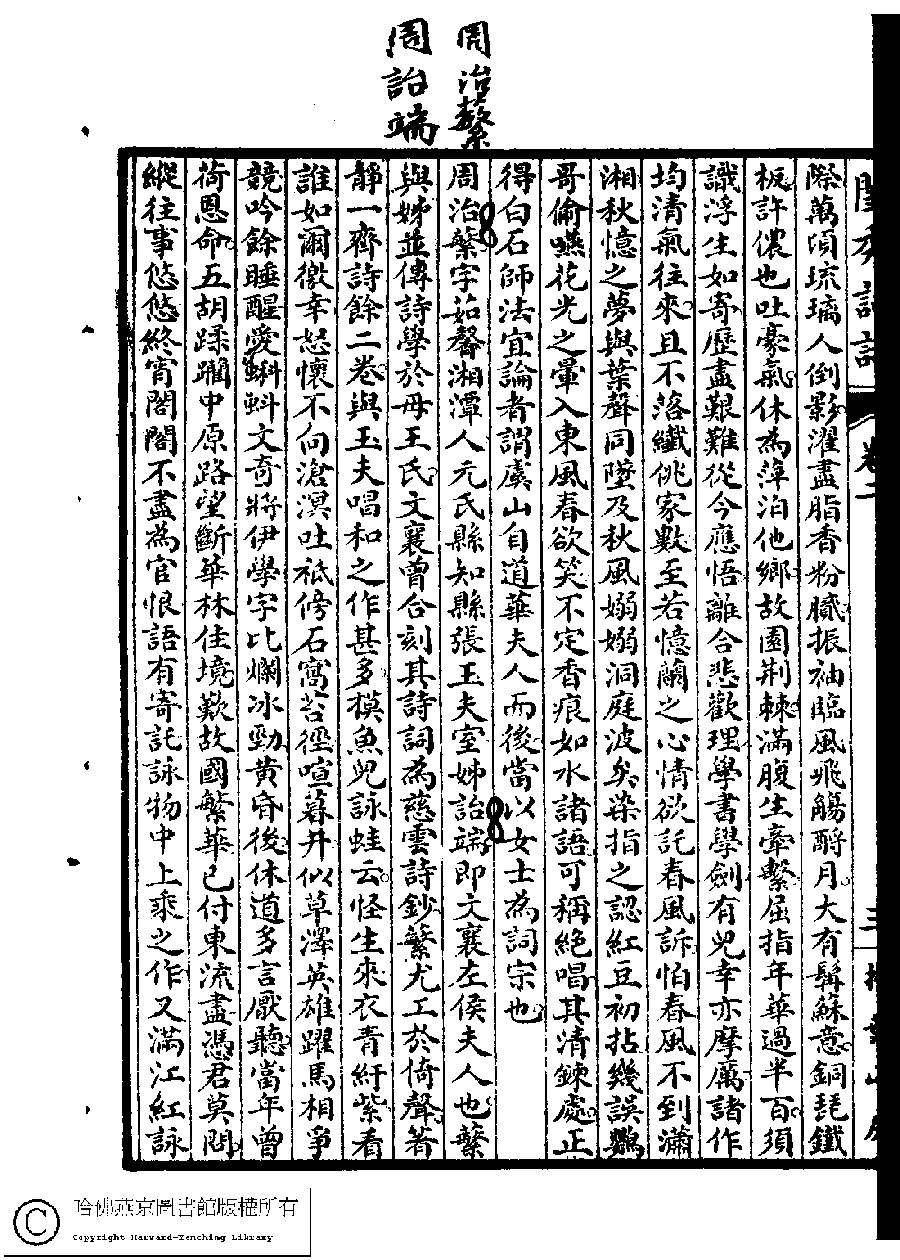 周詒蘩
周詒端
際萬頃琉璃人倒影濯盡脂香粉膩振袖臨風飛觴酹月大有髯蘇意銅琵鐵
板許儂也吐豪氣休為萍泊他鄉故園荆棘滿腹生牽繫屈指年華過半百須
識浮生如寄歷盡艱難從今應悟離合悲歡理學書學劍有兒幸亦摩厲諸作
均清氣往來且不落纖佻家數至若憶蘭之心情欲託春風訴怕春風不到瀟
湘秋憶之夢與葉聲同墜及秋風嫋嫋洞庭波矣染指之認紅豆初拈幾誤鸚
哥偷嚥花光之暈入東風春欲笑不定香痕如水諸語可稱絕唱其清鍊處正
得白石師法宜論者謂虞山自道華夫人而後當以女士為詞宗也
周治蘩字茹馨湘潭人元氏縣知縣張玉夫室姊詒端即文襄左侯夫人也蘩
與姊並傳詩學於母王氏文襄曾合刻其詩詞為慈雲詩鈔蘩尤工於倚聲著
靜一齋詩餘二卷與玉夫唱和之作甚多摸魚兒詠蛙云怪生來衣青紆紫看
誰如爾徼幸恕懷不向滄溟吐祗傍石窩苔徑喧暮井似草澤英雄躍馬相爭
競吟餘睡醒愛蝌蚪文奇將伊學字比斕冰勁黃昏後休道多言厭聽當年曾
荷恩命五胡蹂躪中原路望斷華林佳境歎故國繁華已付東流盡憑君莫問
縱往事悠悠終宵閣閣不盡為官恨語有寄託詠物中上乘之作又滿江紅詠
閨秀詞話
卷二
三
哈佛燕京圖書館版權所有
Copyright Harvard-Yenching Library